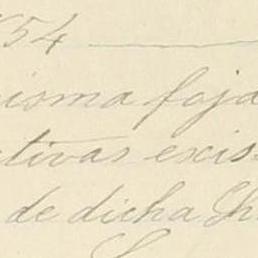 54
isma foja
tivas exis-
de dicha